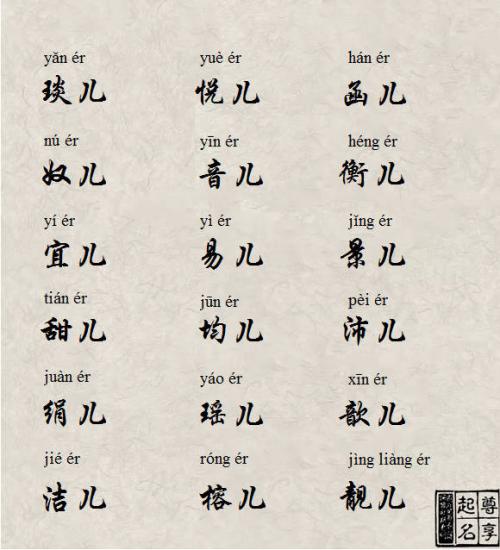 yǎn ér yuè ér hán ér
琰儿 悦儿 函儿
nú ér yīn ér héng ér
奴儿 音儿 衡儿
yí ér yì ér jǐng ér
宜儿 易儿 景儿
tián ér jūn ér pèi ér
甜儿 均儿 沛儿
juàn ér yáo ér xīn ér
绢儿 瑶儿 歆儿
jié ér róng ér jìng liàng ér
洁儿 榕儿 靓儿
尊享
起名